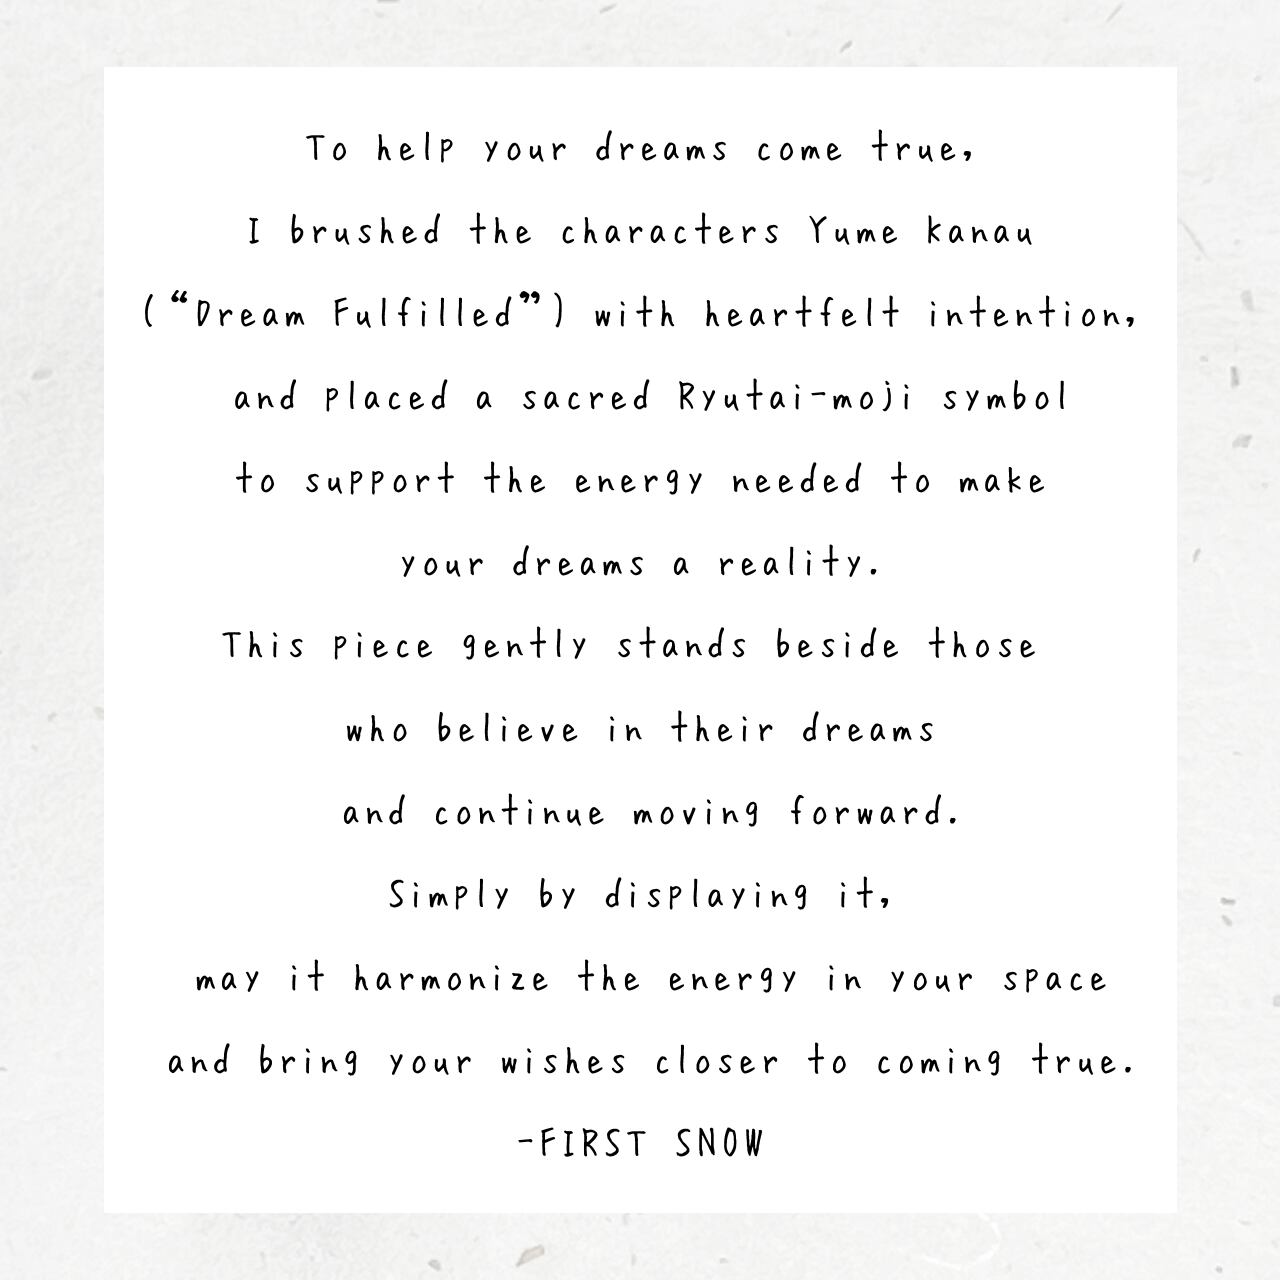 To help your dreams come true,
I brushed the characters Yume kanau
(“Dream Fulfilled”) with heartfelt intention,
and placed a sacred Ryutai-moji symbol
to support the energy needed to make
your dreams a reality.
This piece gently stands beside those
who believe in their dreams
and continue moving forward.
Simply by displaying it,
may it harmonize the energy in your space
and bring your wishes closer to coming true.
-FIRST SNOW